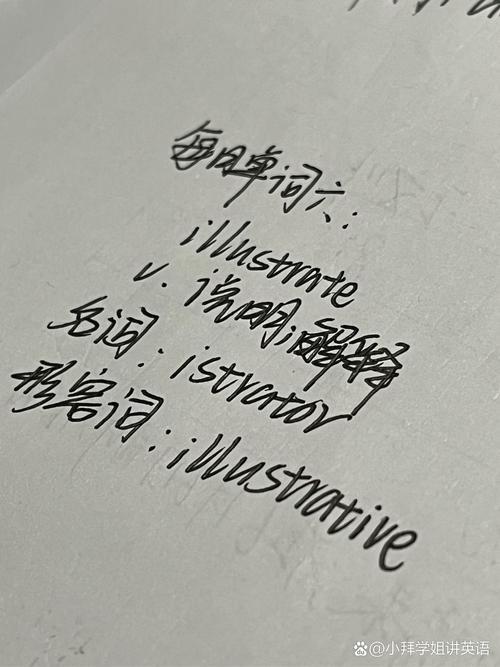 每日单词六：
illustrate
v. 说明；解释
名词：istrator
形容词：illustrative
小拜学姐讲英语